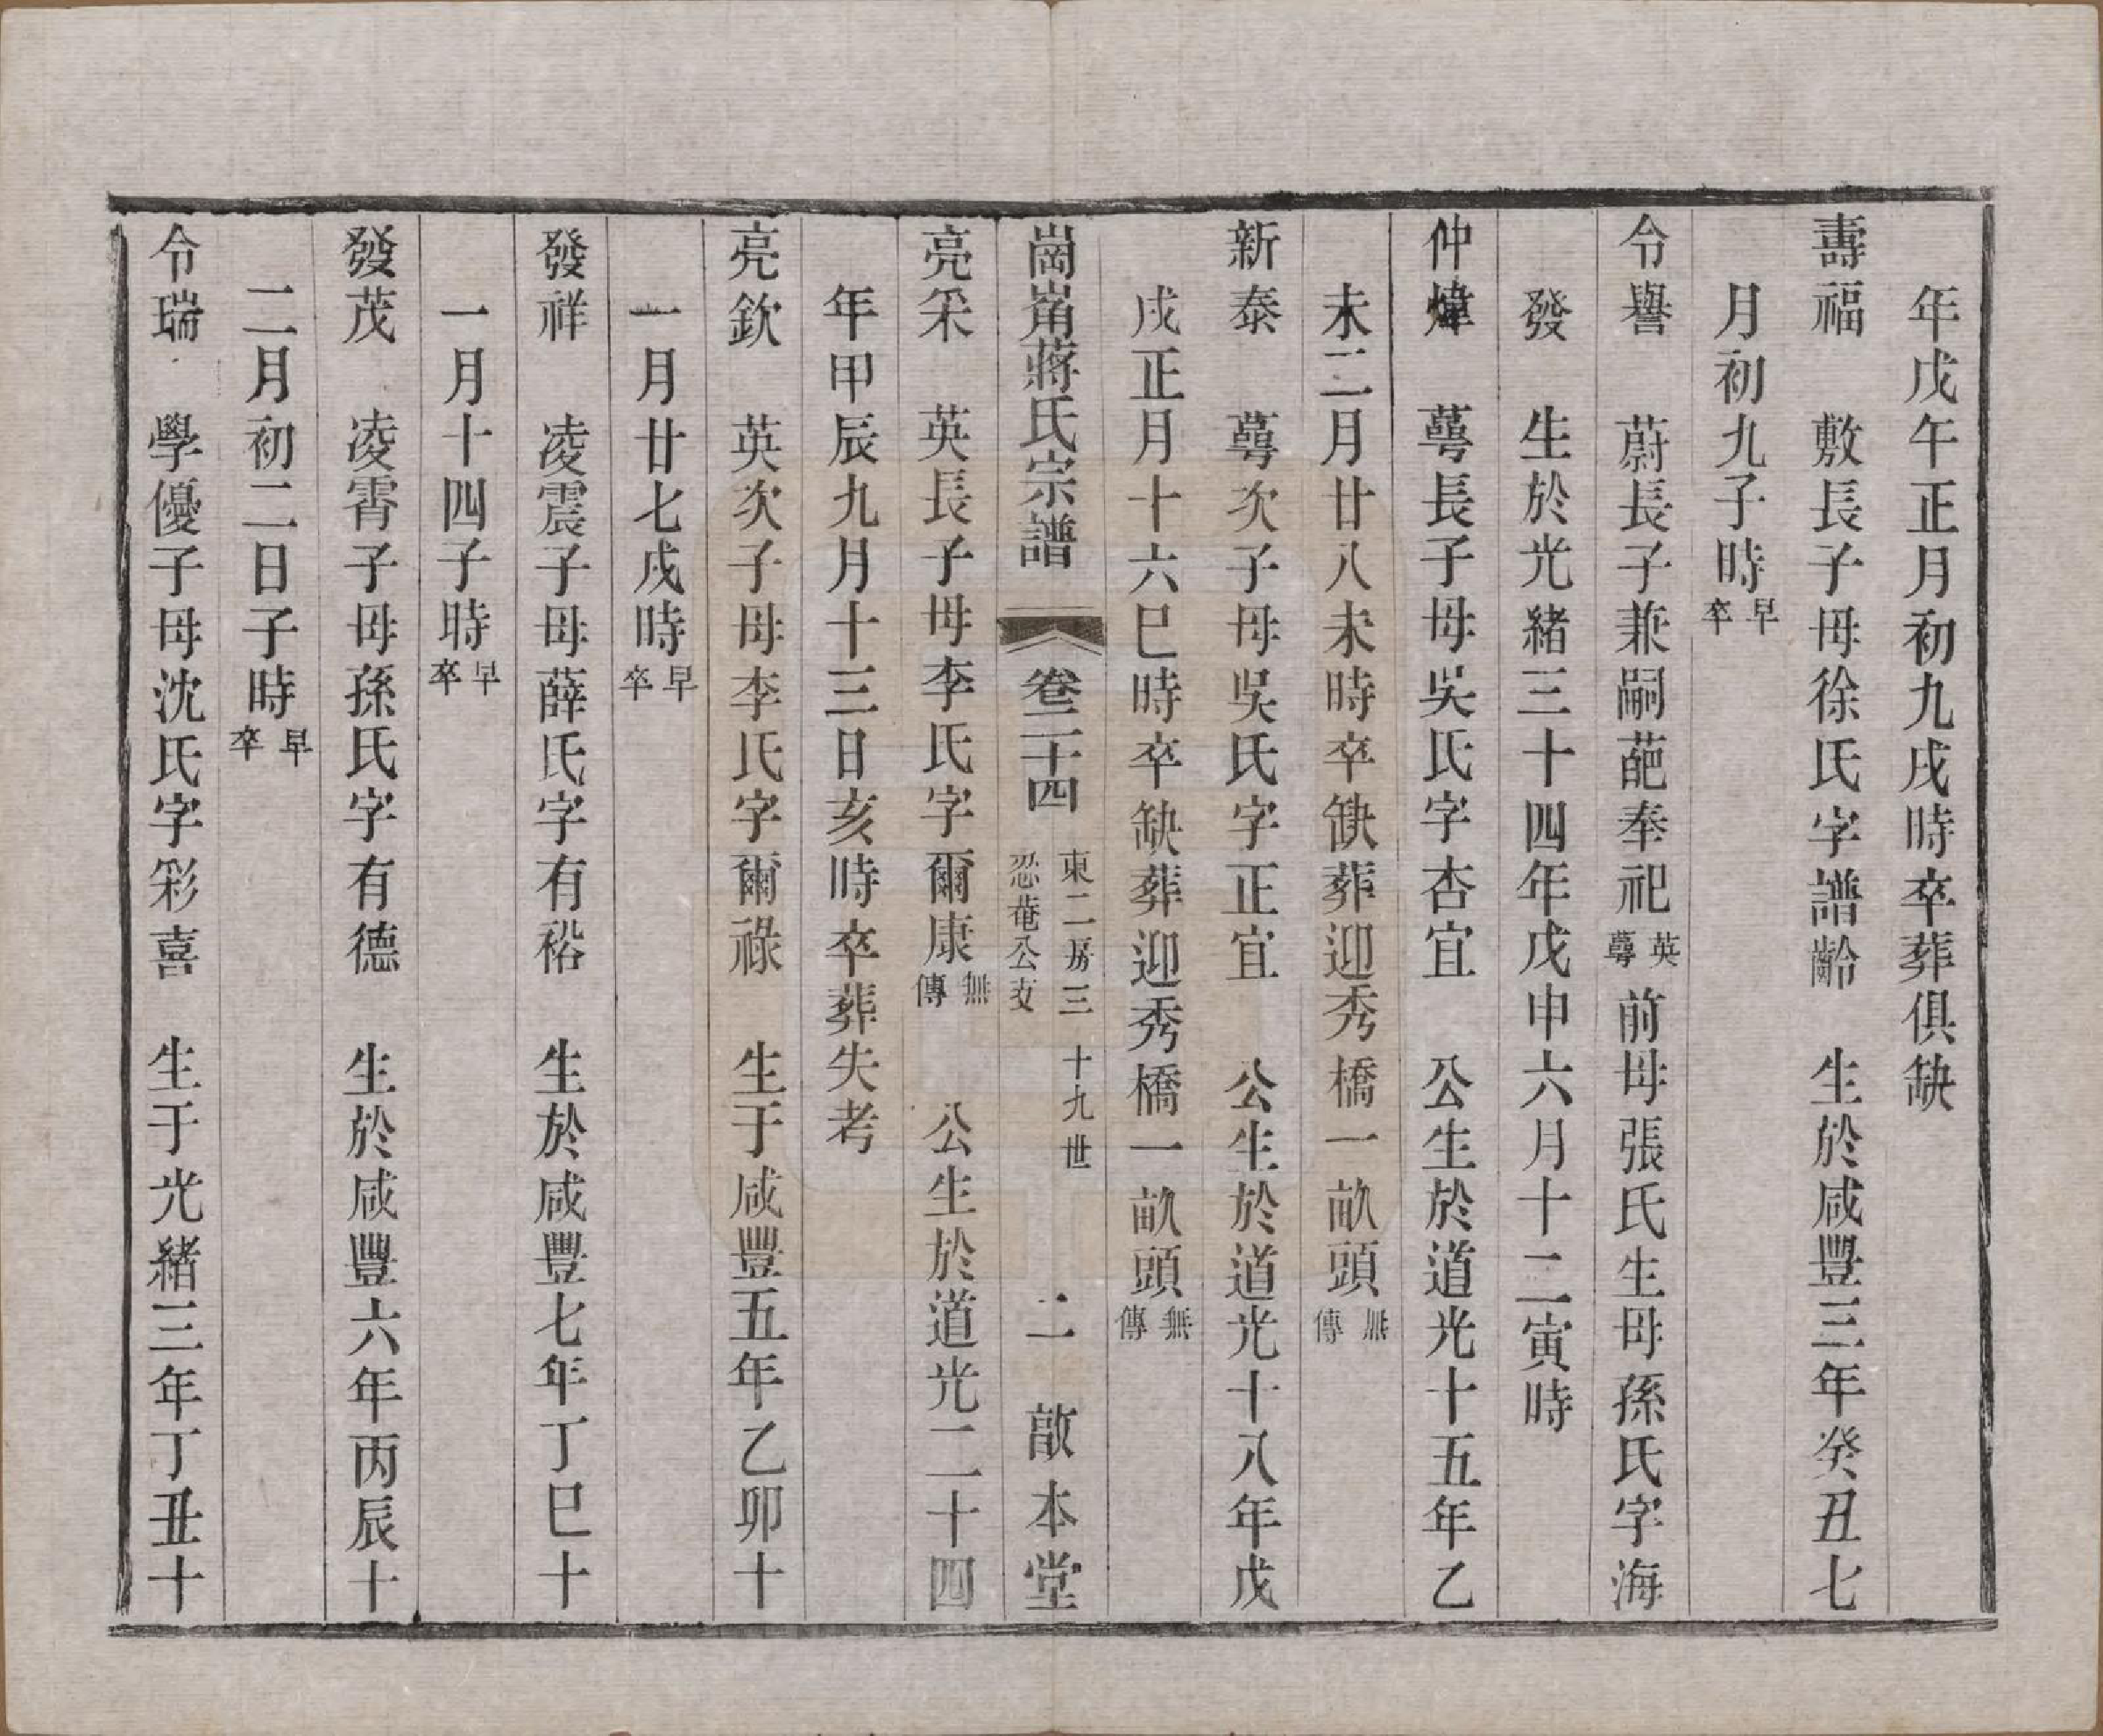 年戊午正月初九戌時卒葬俱缺
壽福 敷長子母徐氏字譜齡 生於咸豐三年癸丑七
月初九子時早卒
令譽 蔚長子兼嗣葩奉祀英蕚前母張氏生母孫氏字海
發 生於光緒三十四年戊申六月十二寅時
仲煒 蕚長子母吳氏字杏宜 公生於道光十五年乙
未二月廿八未時卒缺葬迎秀橋一畝頭無傳
新泰 蕚次子母吳氏字正宜 公生於道光十八年戊
戌正月十六巳時卒缺葬迎秀橋一畝頭無傳
崗嵛蔣氏宗譜 卷二十四 東二房三 忍菴公支 十九世 二 敵本堂
亮采 英長子母李氏字爾康無傳 公生於道光二十四
年甲辰九月十三日亥時卒葬失考
亮欽 英次子母李氏字爾祿 生于咸豐五年乙卯十
一月廿七戌時早卒
發祥 凌震子母薛氏字有裕 生於咸豐七年丁巳十
一月十四子時早卒
發茂 凌霄子母孫氏字有德 生於咸豐六年丙辰十
二月初二日子時早卒
令瑞 學優子母沈氏字彩喜 生于光緒三年丁丑十